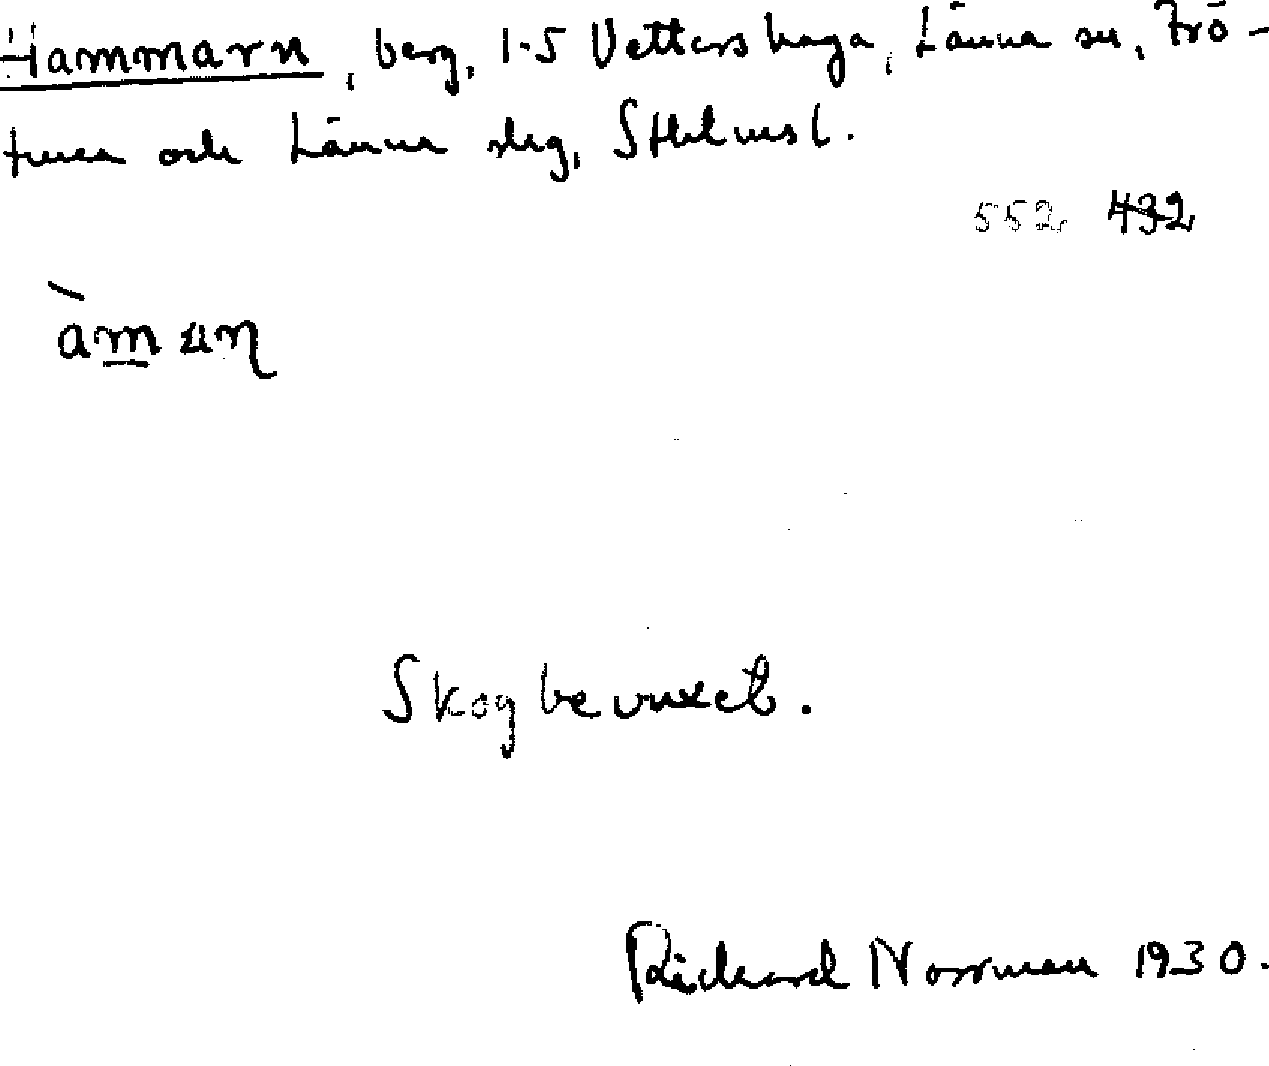 Hammarn, berg, 1-5 Vettershaga, Länna sn, Frö-
tuna och Länna slg, Sthlmsl.
552 432
àmaɳ
Skogbevuxet.
Richard Norrman 1930.